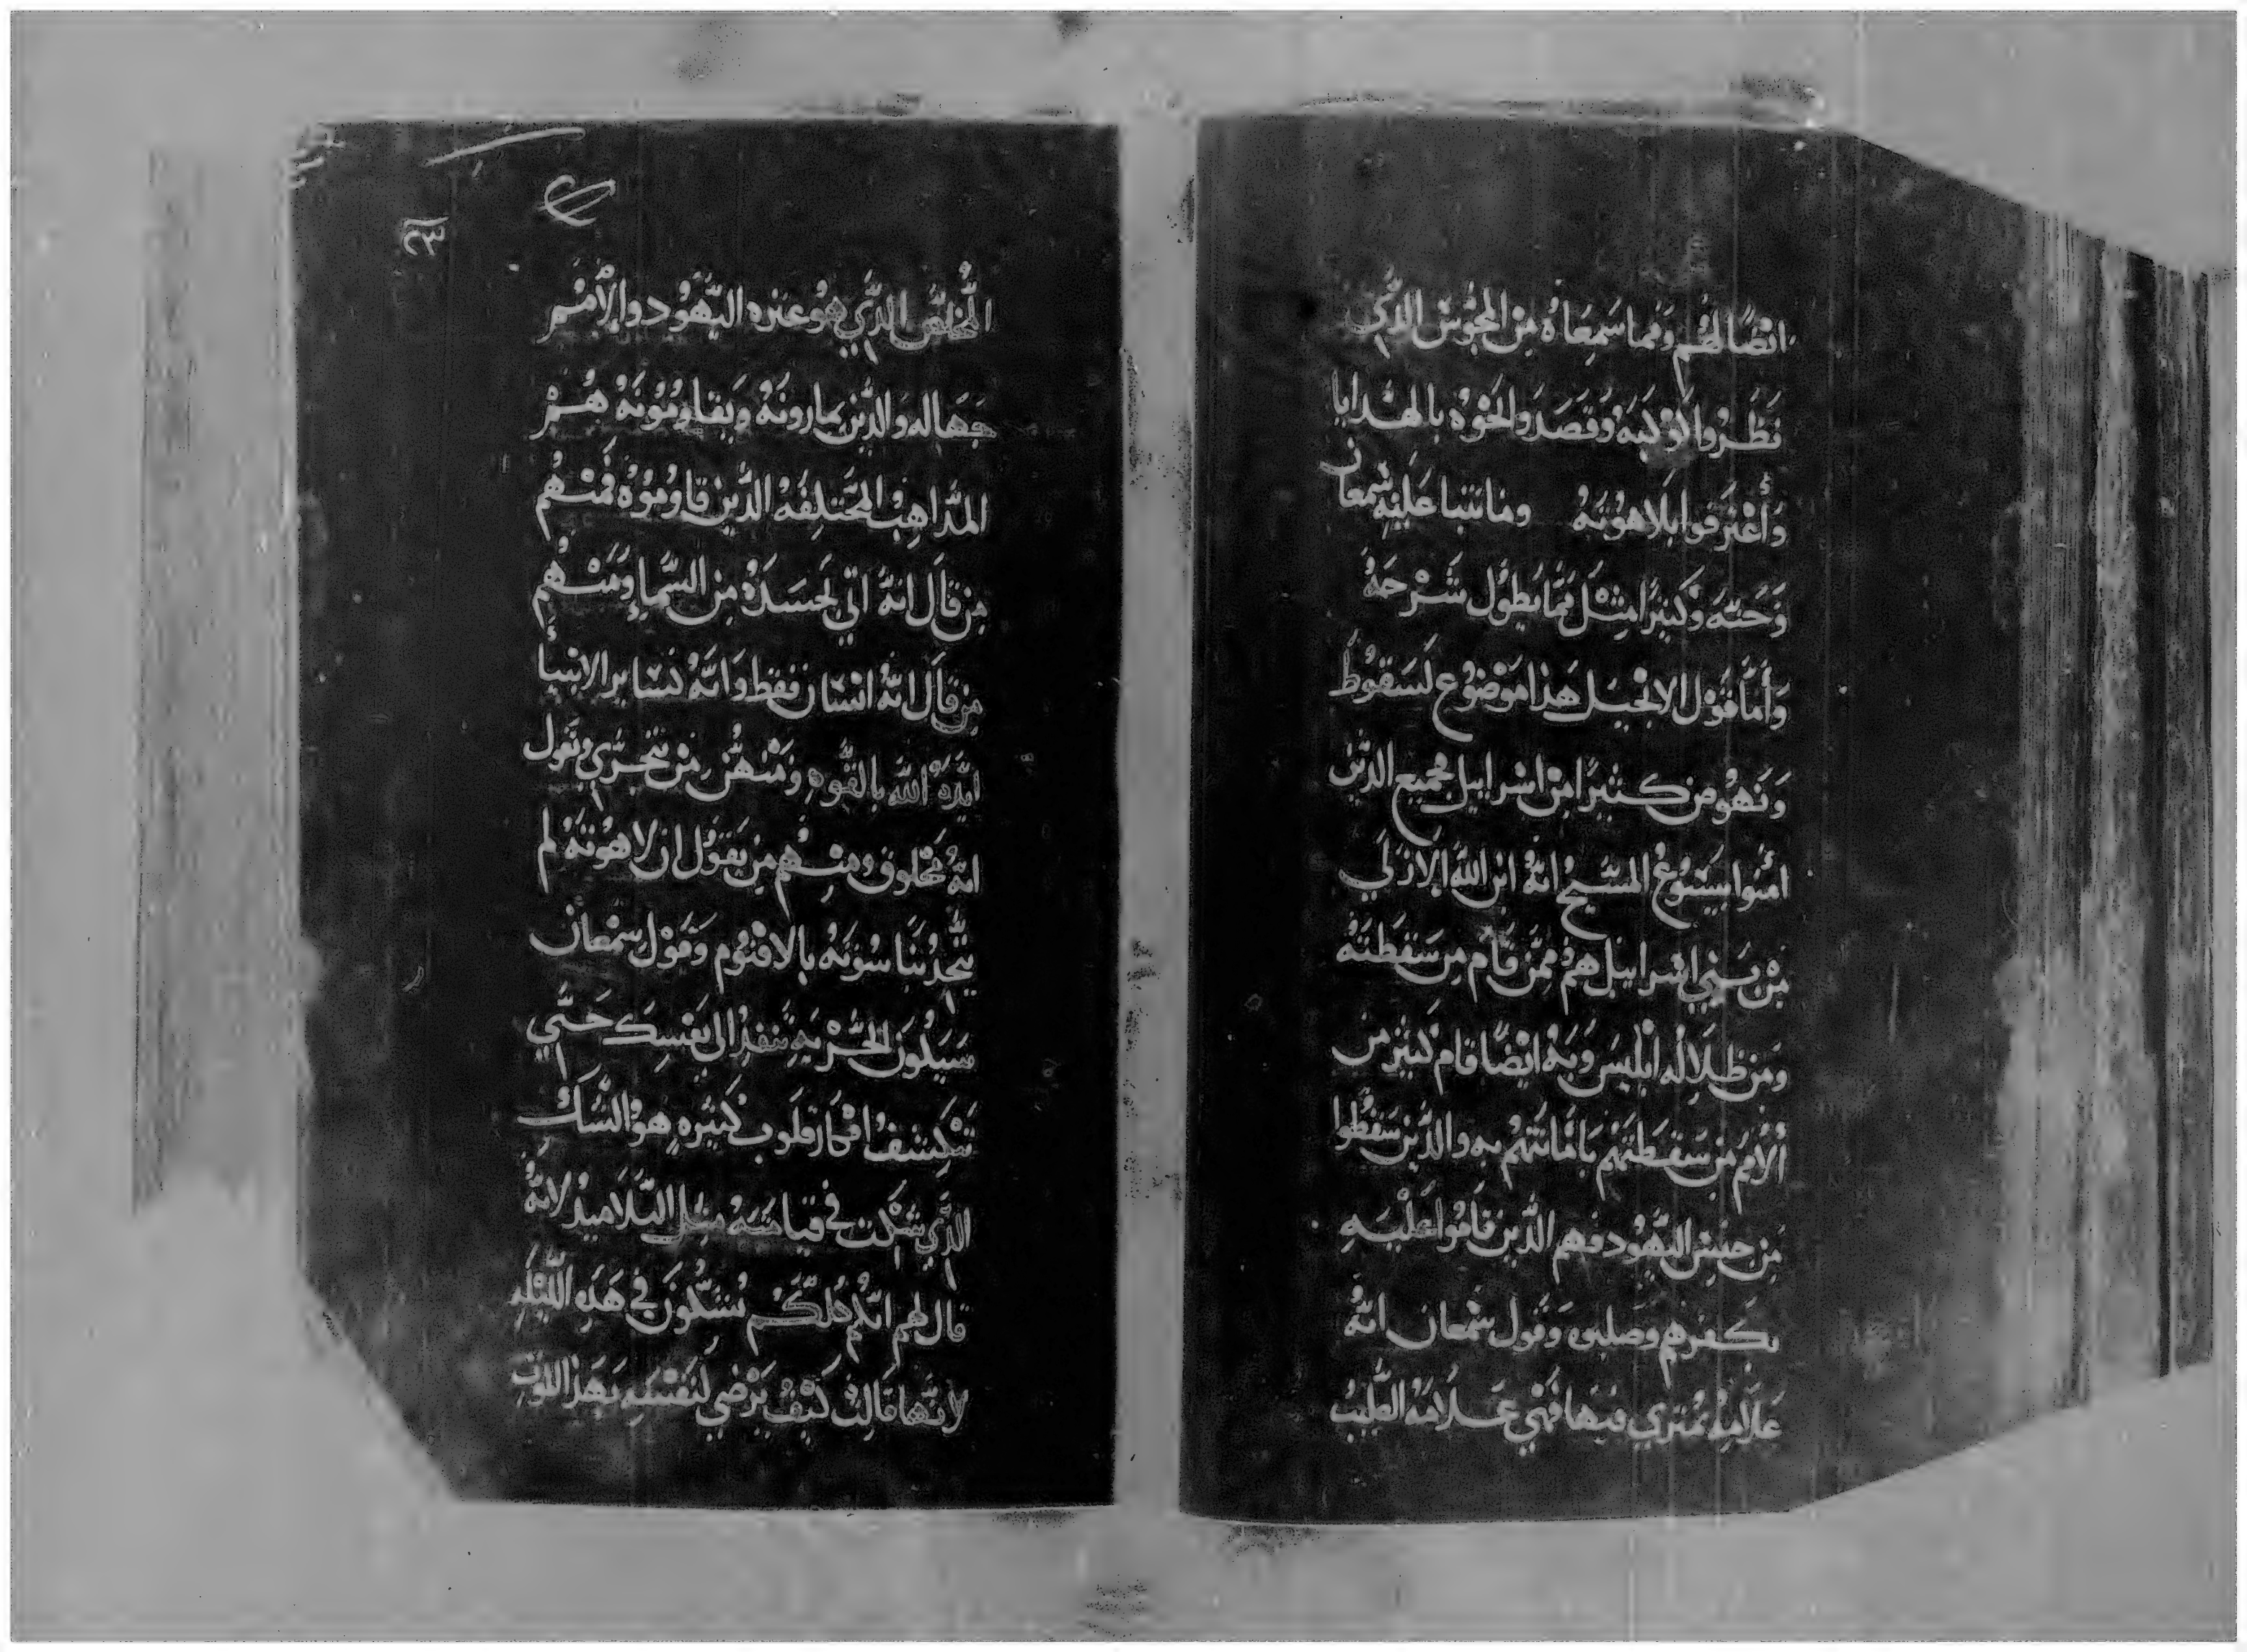 ايضًا لهُم ومما سَمِعَاهُ مِن المجُوسْ الذّي
نَظَرُوا لاوْلَيَهْ وَقَصَدَوا لخَوْه بالهَدايا
وَأعْتَرَفوا بلَاهُوْتِهُ ومَا تنبا عَليْهِ شمْعَان
وَحَنَّه وَكَثيرًا مِثْل مِمّا يُطوُل شَرْحَهْ
وَأمَّا قَوْل الانجيْل هَذا مَوْضُوْع لسَقُوطْ
وَنَهُوض كثيْرًا مِنْ اسْراييل فجميع الذيْن
امَنُوا بيَسُوعْ المسَيحْ انهُ ابْن اللهْ الازلي
مِنْ بَني اسْراييل هُمْ ممَّن قام مِن سَقطتهْ
وَمِن ظلَالِه ابْليسْ وَبِهْ ايْضًا قام كَثير مِن
الأُمَمْ مِن سَقطتهمْ بَامَانَتهمْ بِهِ والذّين سَقطُوا
مِن جنسْ اليَهُود فهم الذّين قَامُوا عَليْهِ
بكُفرهِم وصلبوه وَقول شمعان انهُ
عَلامِهْ تمتري فيْهَا فَهْي عَلَامَة الصَّليبْ
المخلّصْ الذّي هُو عَثره اليَهُود والأُمَمْ
جَهَاله وَالذّين يمارونَهُ وَيقاوِمُونَهُ هُمْ
المذَاهِبْ المختَلِفَهْ الذّين قاوَمُوهْ فمنْهُم
مِن قَال انهُ اتي بجَسَدَهْ مِن السَّمَا وَمنْهُم
مِن قَال انهُ انسَان فقط وَانَّهُ كسَاير الانبيَا
ايّدَهُ اللهْ بالقُوّه وَمنْهُم مِن يتجري ويَقول
انهُ مخْلوق ومنْهُم مِن يَقوُل ان لاهُوْتَهُ لم
يتّحِدْ بنَاسُوتَهُ بالاقنُوم وَقَوْل سمْعَان
سَيَكُون الحَرْبَهِ تنفِذْ الي نفسِكْ حَتّي
تَنكشفْ افكار قلُوب كَثيره هُو الشَكْ
الذّي شَكْت في قيامَتهُ مِثل التّلَاميذْ لانهُ
قال لهم انّكم كلّكُم تُشَكّون في هَذِه الليْله
لانّها قَالتْ كَيْف يَرْضي لنَفسْه بَهَذا الموت